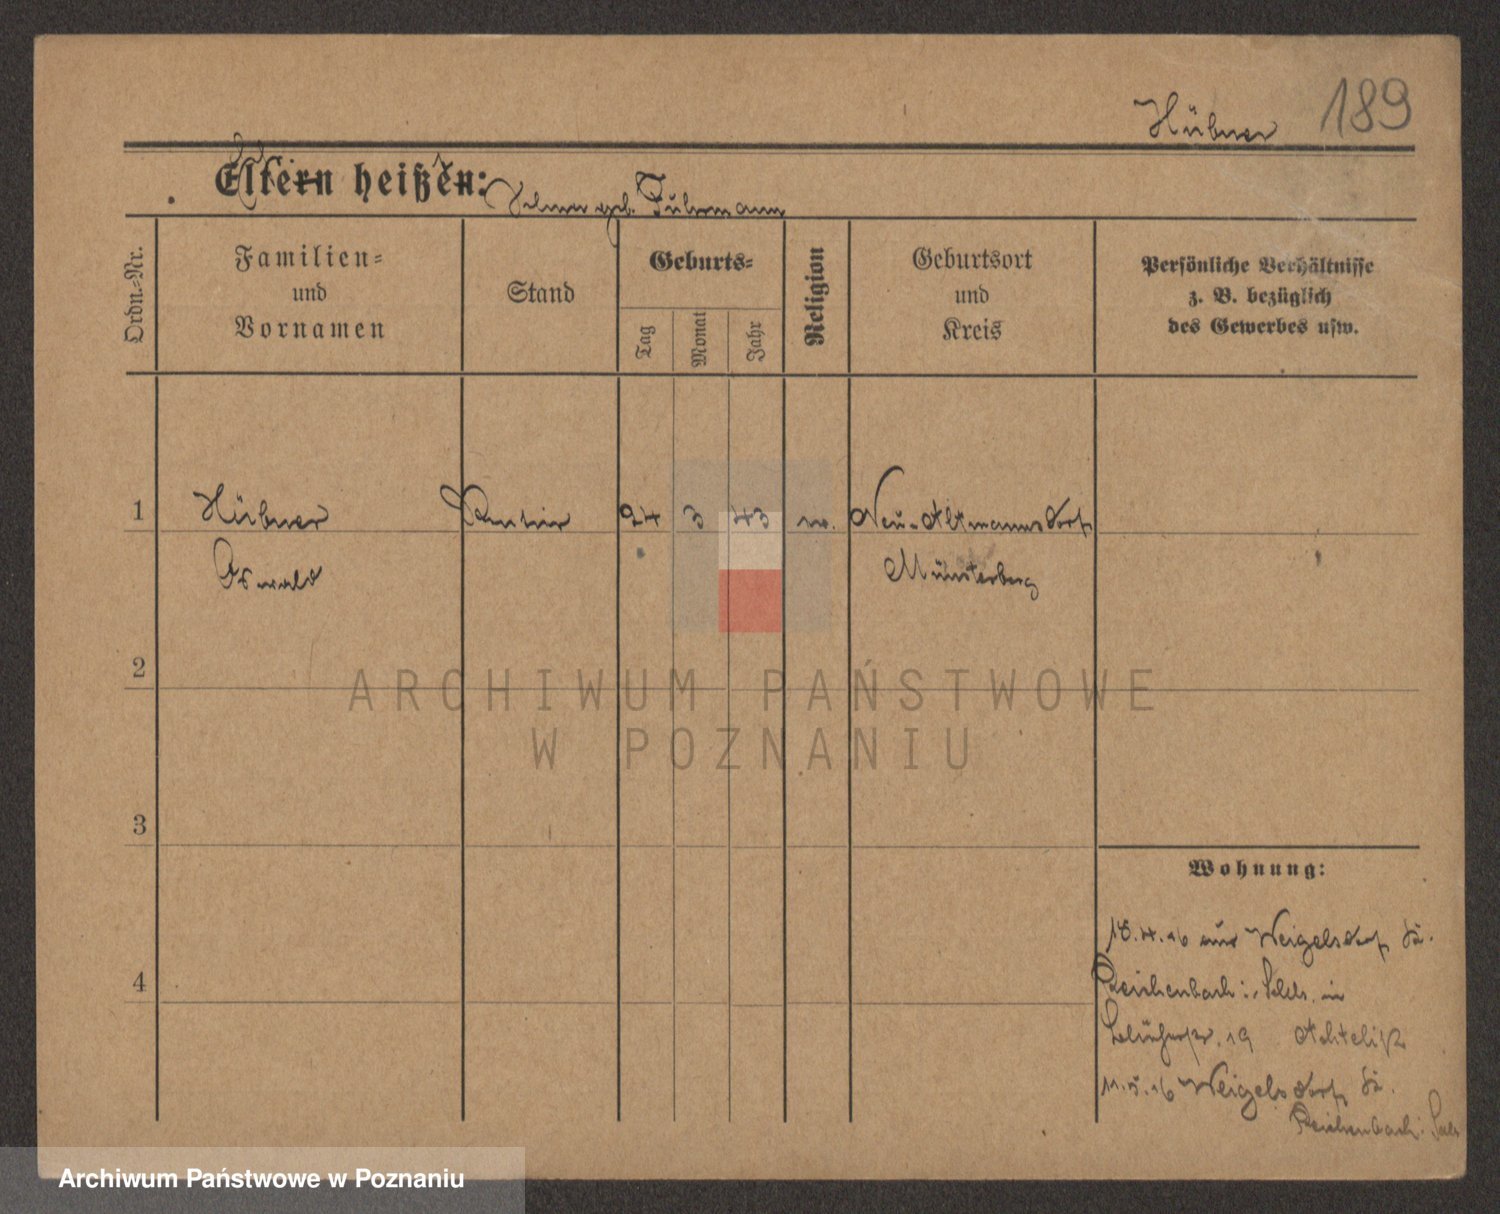 189
Hübner
Eltern heißen:
geb. Fuhrmann
Ordn.-Nr.
Familien-
und
Vornamen
Stand
Geburts-
Tag
Monat
Jahr
Religion
Geburtsort
und
Kreis
Persönliche Verhältnisse
z. B. bezüglich
des Gewerbes usw.
1
Hübner
Rentier
24
3
43
Neu-Altmannsdorf
Oswald
Münsterberg
2
ARCHIWUM PAŃSTWOWE
W POZNANIU
3
Wohnung:
18.4.16 aus Weigelsdorf
4
Reichenbach i. Schles. in
19
11.5.16 Weigelsdorf
Reichenbach i. Schles
Archiwum Państwowe w Poznaniu